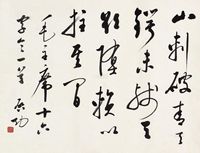 山刺破青天
鍔未残天
欲堕賴以
拄其間
毛主席十六
字令一首 启功